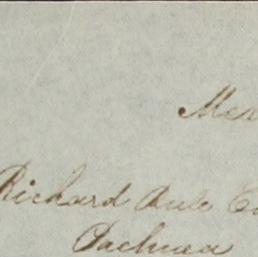 Mex
Richard Rule E
Pachuca